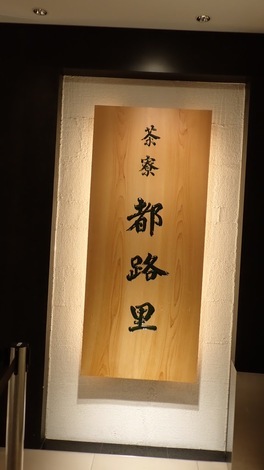 茶寮都路里